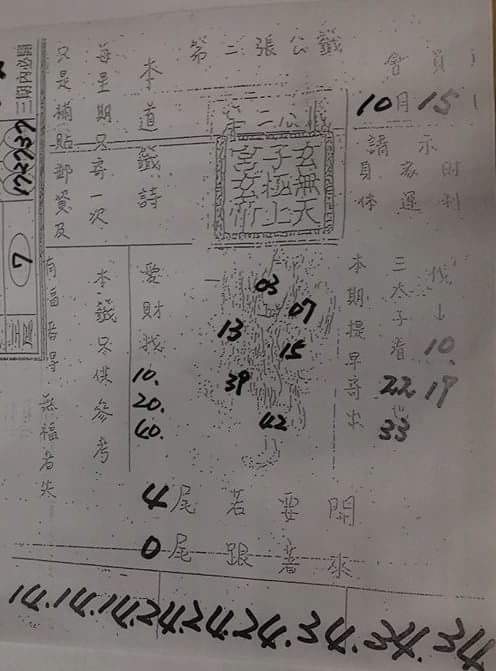 第二張公籤
會員
10月15
請示
身体
家運
財利
10.
19
三太子看
22
33
本期提早寄出
玄無天
子極上
宮玄
03
07
13
15
39
42
本道籤詩
愛財找
10.
20.
40.
每星期只寄一次
本籤只供參考
只是補貼郵資及
有福者得 無福者失
4尾若要開
0尾跟著來
14.14.14.24.24.24.34.34.34
三期內必開
17 27 37
7